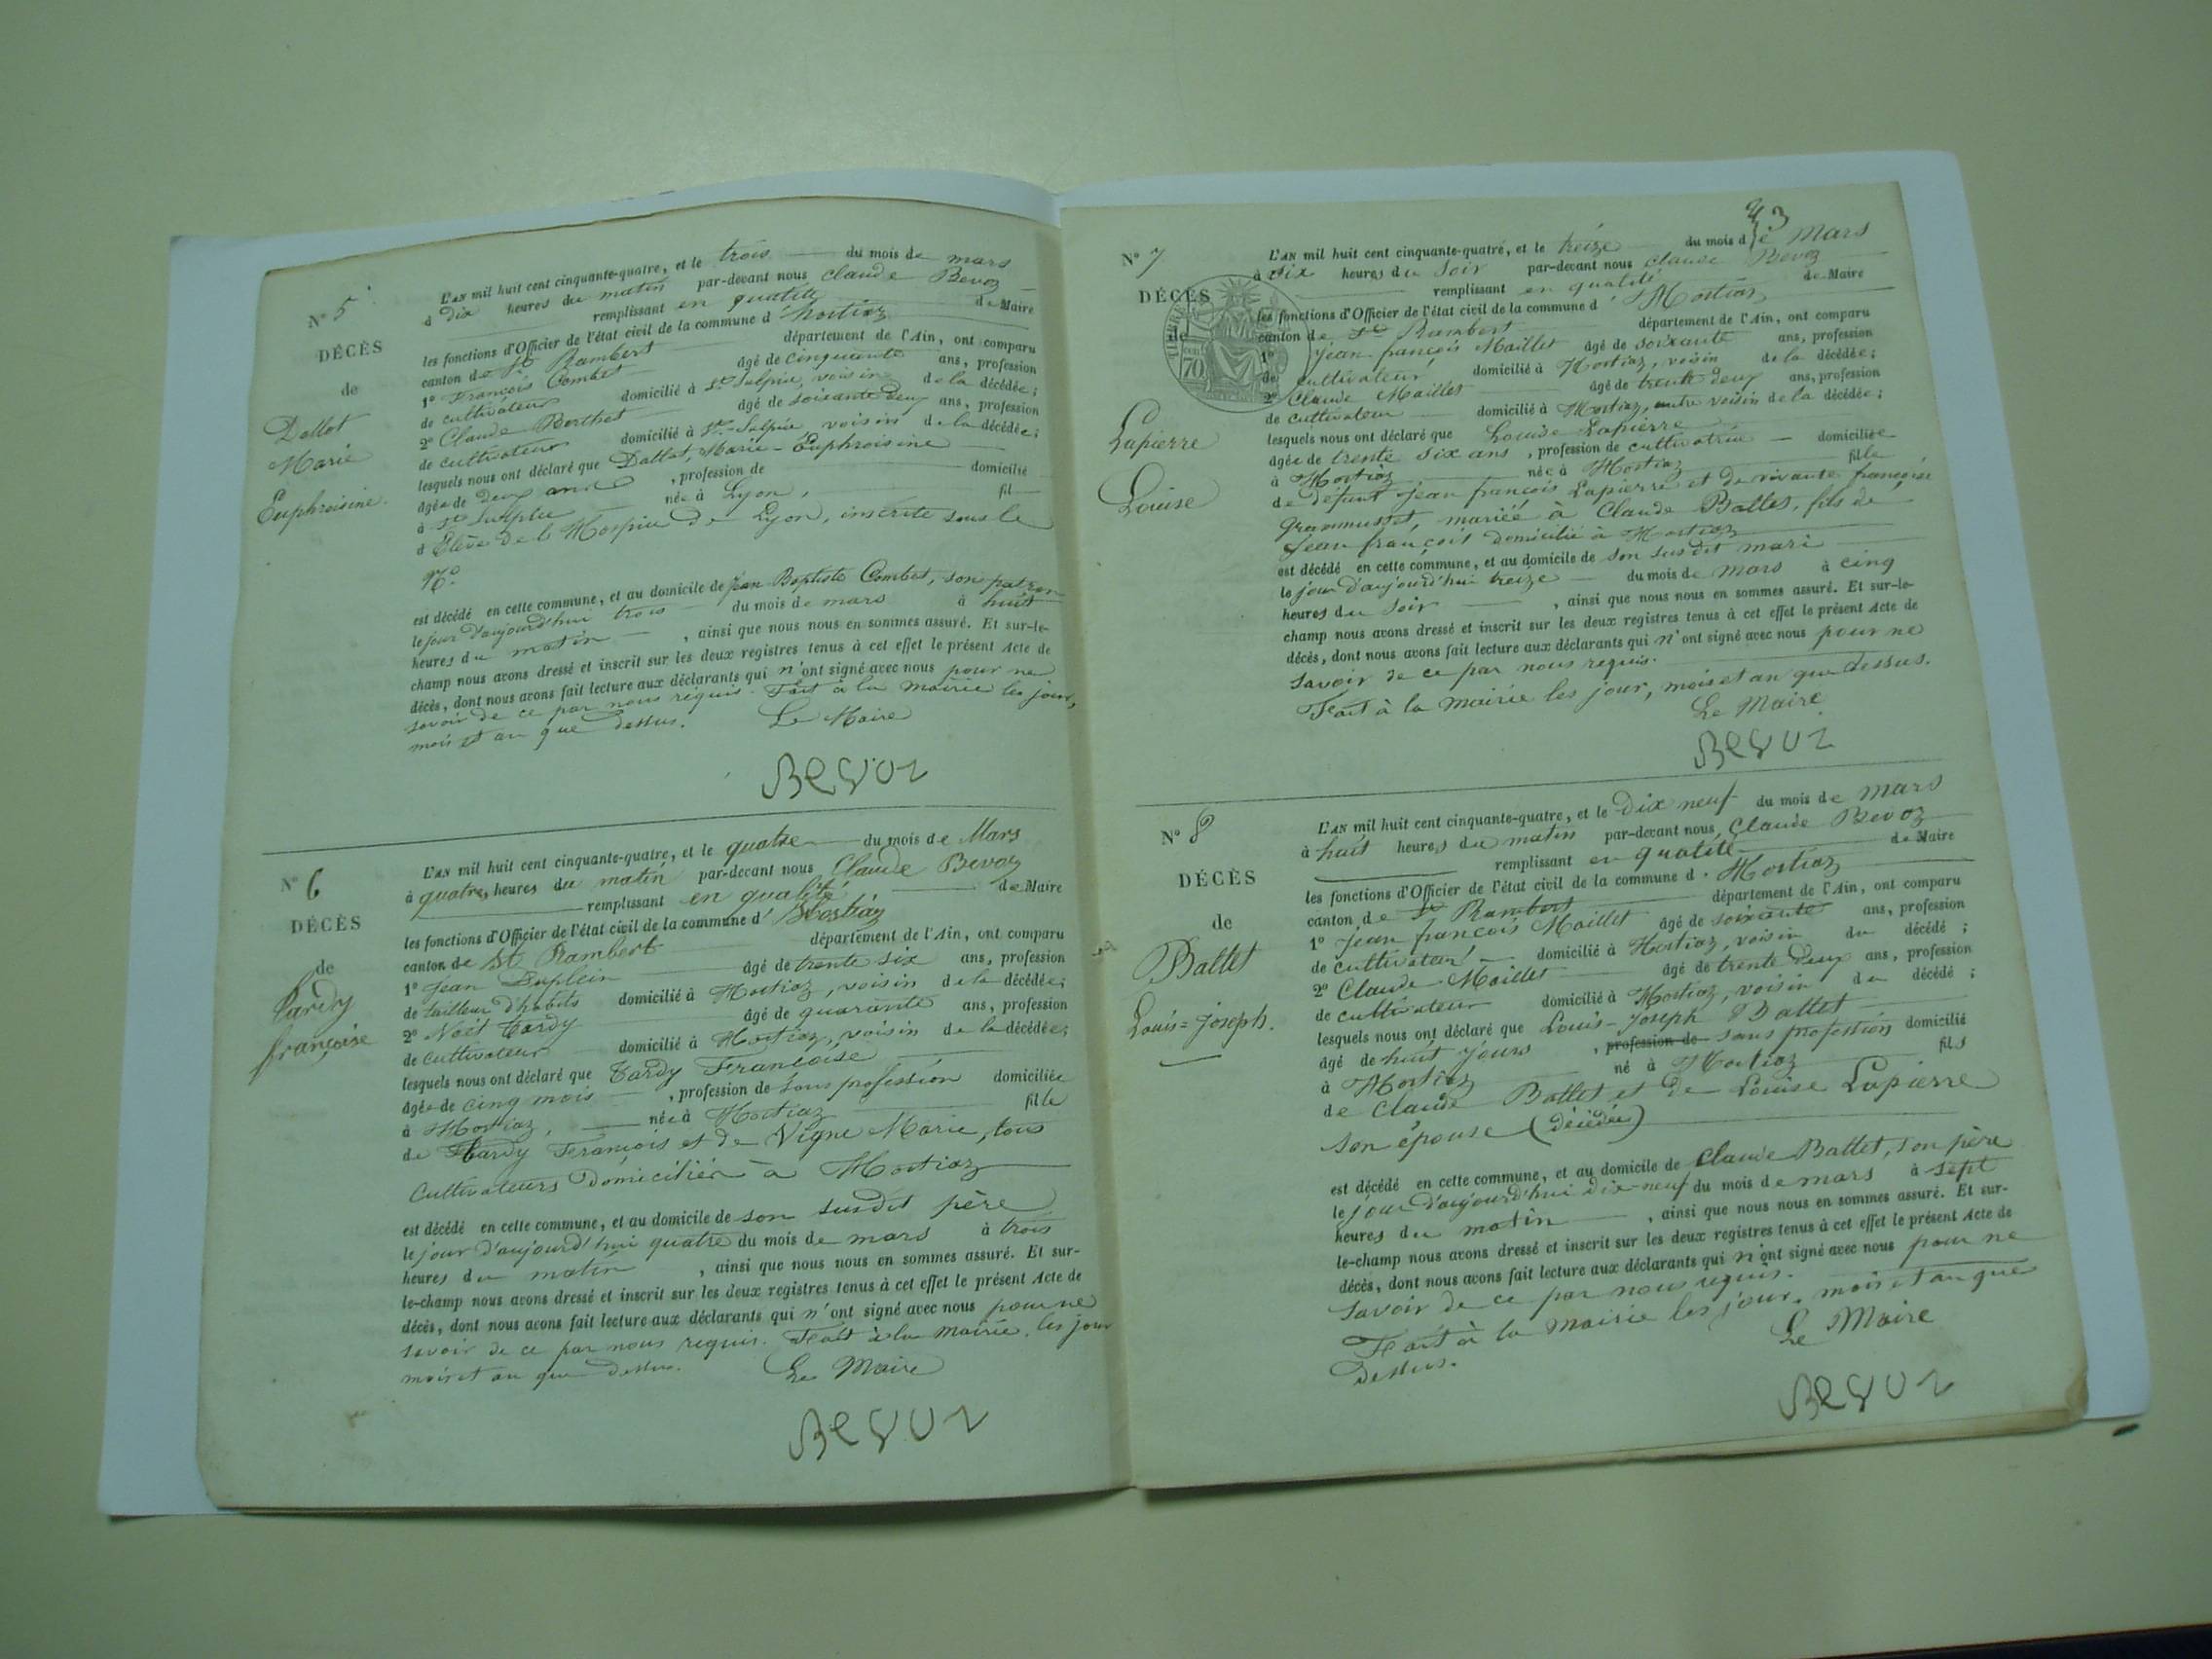 N° 5
DÉCÈS
de
Dallot
Marie
Euphroisine.
L'AN mil huit cent cinquante-quatre, et le trois du mois de mars
à dix heures du matin par-devant nous Claude Bevoz
remplissant en qualité de Maire
les fonctions d'Officier de l'état civil de la commune d'hostiaz
canton de St Rambert département de l'Ain, ont comparu
1° François Combet âgé de cinquante ans, profession
de cultivateur domicilié à St Sulpice, voisin de la décédée;
2° Claude Berthet âgé de soixante deux ans, profession
de cultivateur domicilié à St Sulpice, voisin de la décédée;
lesquels nous ont déclaré que Dallot, Marie-Euphroisine
âgée de deux ans, profession de domicilié
à St Sulpice née à Lyon, fil
d Élève de l'Hospice de Lyon, inscrite sous le
N°.
est décédé en cette commune, et au domicile de Jean Baptiste Combet, son patron
le jour d'aujourd'hui trois du mois de mars à huit
heures du matin, ainsi que nous nous en sommes assuré. Et sur-le-
champ nous avons dressé et inscrit sur les deux registres tenus à cet effet le présent Acte de
décès, dont nous avons fait lecture aux déclarants qui n'ont signé avec nous pour ne
savoir de ce par nous requis. Fait à la mairie les jour,
mois et an que dessus. Le Maire
Bevoz
N° 6
DÉCÈS
de
Tardy
françoise
L'AN mil huit cent cinquante-quatre, et le quatre du mois de Mars
à quatre, heures du matin par-devant nous Claude Bevoz
remplissant en qualité de Maire
les fonctions d'Officier de l'état civil de la commune d'Hostiaz
canton de St Rambert département de l'Ain, ont comparu
1° Jean âgé de trente six ans, profession
de tailleur d'habits domicilié à Hostiaz, voisin de la décédée;
2° Noël Tardy âgé de quarante ans, profession
de cultivateur domicilié à Hostiaz, voisin de la décédée;
lesquels nous ont déclaré que Tardy Françoise
âgée de cinq mois, profession de sans profession domiciliée
à Hostiaz, née à Hostiaz fille
de Tardy François et de Vigne Marie, tous
cultivateurs domiciliés à Hostiaz
est décédé en cette commune, et au domicile de son susdit père
le jour d'aujourd'hui quatre du mois de mars à trois
heures du matin, ainsi que nous nous en sommes assuré. Et sur-
le-champ nous avons dressé et inscrit sur les deux registres tenus à cet effet le présent Acte de
décès, dont nous avons fait lecture aux déclarants qui n'ont signé avec nous pour ne
savoir de ce par nous requis. Fait à la mairie, les jour
mois et an que dessus. Le Maire
Bevoz
3
N° 7
DÉCÈS
de
Lapierre
Louise
70
L'AN mil huit cent cinquante-quatre, et le treize du mois de Mars
à six heures du soir par-devant nous Claude Bevoz
remplissant en qualité de Maire
les fonctions d'Officier de l'état civil de la commune d'Hostiaz
canton de St Rambert département de l'Ain, ont comparu
1° Jean françois Maillet âgé de soixante ans, profession
de cultivateur domicilié à Hostiaz, voisin de la décédée;
2° Claude Maillet âgé de trente deux ans, profession
de cultivateur domicilié à Hostiaz, autre voisin de la décédée;
lesquels nous ont déclaré que Louise Lapierre
âgée de trente six ans, profession de cultivatrice domiciliée
à Hostiaz née à Hostiaz fille
de défunt Jean françois Lapierre et de vivante françoise
Grammusset, mariée à Claude Ballet, fils de
Jean françois domicilié à Hostiaz
est décédé en cette commune, et au domicile de son susdit mari
le jour d'aujourd'hui treize du mois de mars à cinq
heures du soir, ainsi que nous nous en sommes assuré. Et sur-le-
champ nous avons dressé et inscrit sur les deux registres tenus à cet effet le présent Acte de
décès, dont nous avons fait lecture aux déclarants qui n'ont signé avec nous pour ne
savoir de ce par nous requis.
Fait à la mairie les jour, mois et an que dessus.
Le Maire
Bevoz
N° 8
DÉCÈS
de
Ballet
Louis=Joseph.
L'AN mil huit cent cinquante-quatre, et le dix neuf du mois de mars
à huit heures du matin par-devant nous, Claude Bevoz
remplissant en qualité de Maire
les fonctions d'Officier de l'état civil de la commune d'Hostiaz
canton de St Rambert département de l'Ain, ont comparu
1° Jean françois Maillet âgé de soixante ans, profession
de cultivateur domicilié à Hostiaz, voisin du décédé;
2° Claude Maillet âgé de trente deux ans, profession
de cultivateur domicilié à Hostiaz, voisin du décédé;
lesquels nous ont déclaré que Louis-Joseph Ballet
âgé de huit jours, profession de sans profession domicilié
à Hostiaz né à Hostiaz fils
de Claude Ballet et de Louise Lapierre
son épouse (décédée)
est décédé en cette commune, et au domicile de Claude Ballet, son père
le jour d'aujourd'hui dix-neuf du mois de mars à sept
heures du matin, ainsi que nous nous en sommes assuré. Et sur-
le-champ nous avons dressé et inscrit sur les deux registres tenus à cet effet le présent Acte de
décès, dont nous avons fait lecture aux déclarants qui n'ont signé avec nous pour ne
savoir de ce par nous requis.
Fait à la mairie les jour, mois et an que
dessus. Le Maire
Bevoz